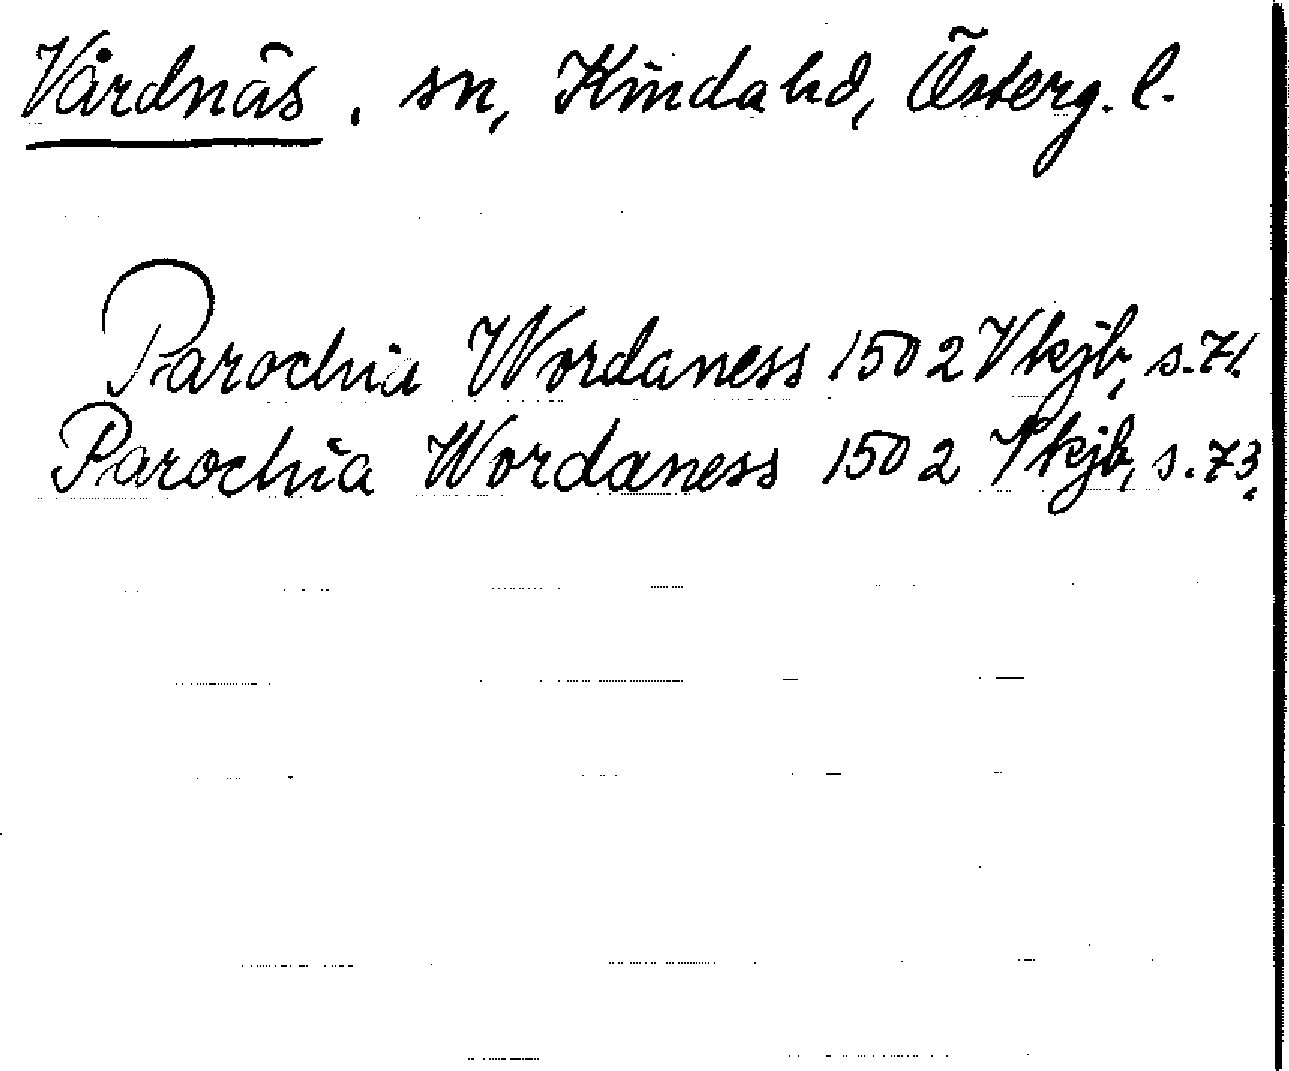 Vårdnäs, sn, Kinda hd, Österg. l.
Parochia Wordaness 1502 Vkjb, s. 71.
Parochia Wordaness 1502 Vkjb, s. 73.